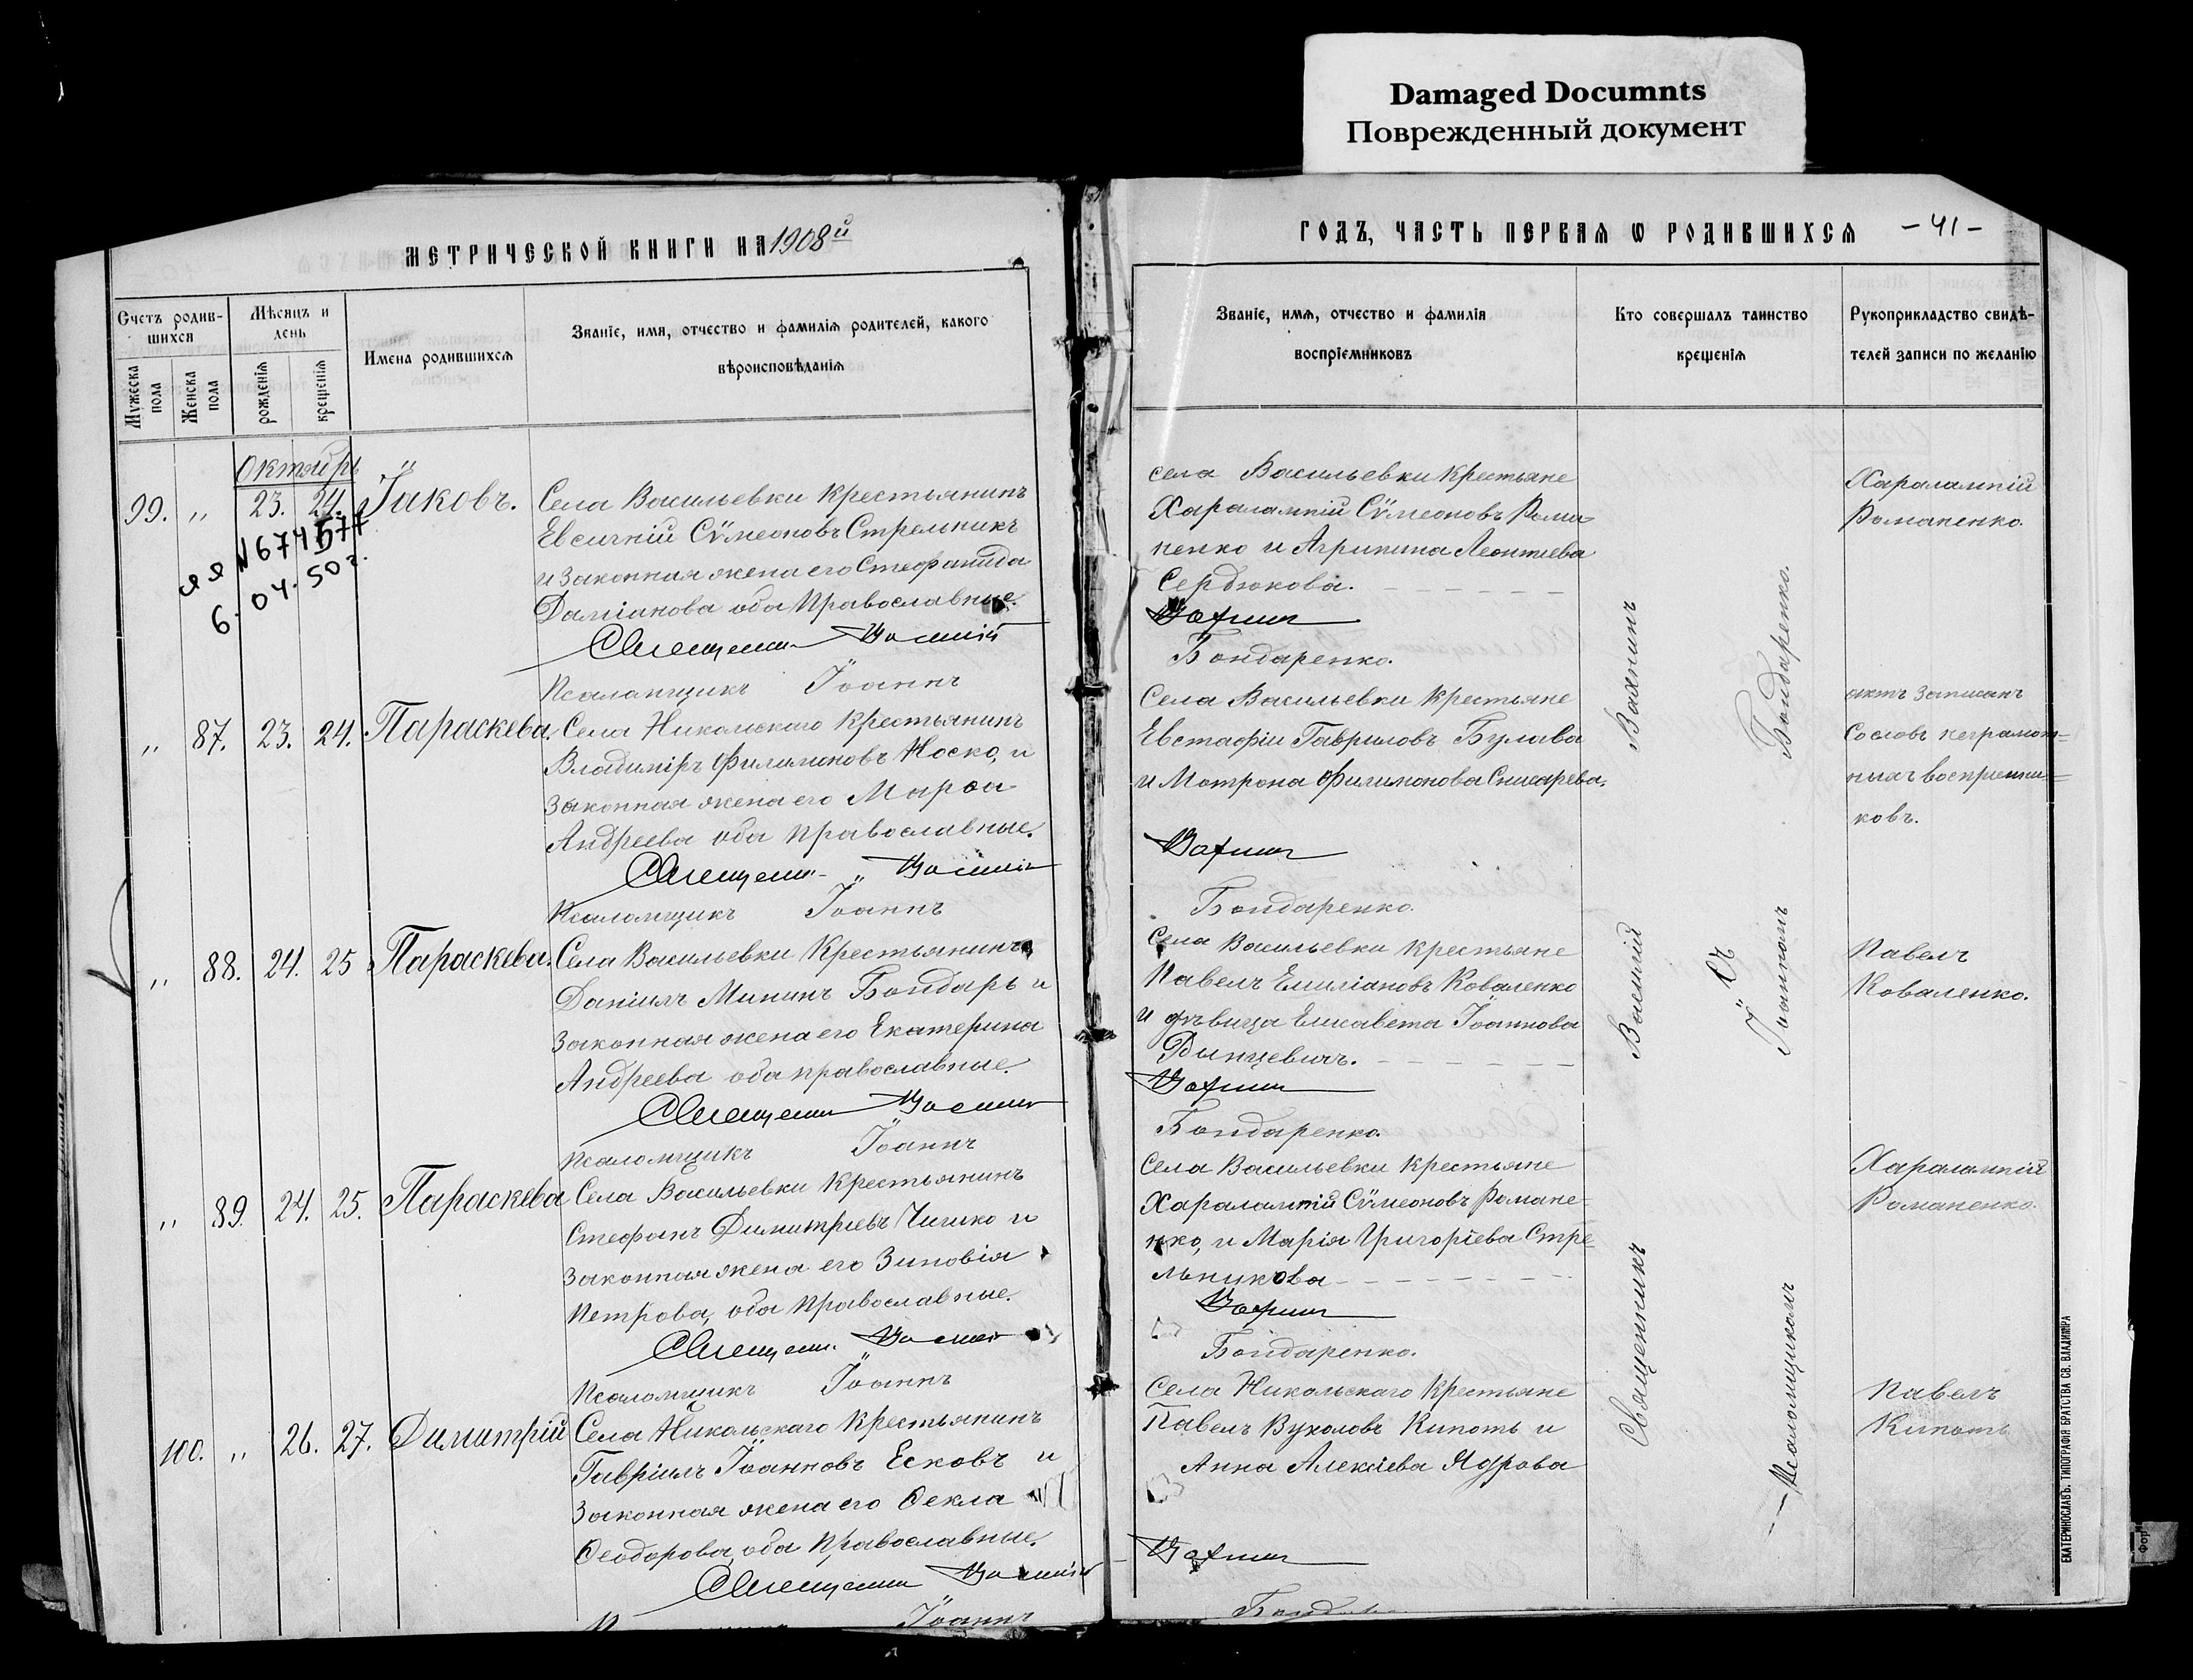 Damaged Documnts
Поврежденный документ
МЕТРИЧЕСКОЙ КНИГИ НА 1908й
Счетъ родив-
шихся
Мѣсяцъ и
день
Имена родившихся
Званіе, имя, отчество и фамилія родителей, какого
вѣроисповѣданія
Мужеска
пола
Женска
пола
рожденія
крещенія
Октябрь
99. " 23. 24. Іаковъ.
6. 04. 50г.
Села Васильевки крестьянинъ
Евсигній Сѵмеоновъ Стрельникъ
и законная жена его Стефанида
Даміанова оба православные.
Священникъ Василій
Псаломщикъ Іоаннъ
" 87. 23. 24. Параскева.
Села Никольскаго крестьянинъ
Владиміръ Филимоновъ Носко, и
законная жена его Марѳа
Андреева оба православные.
Священникъ Василій
Псаломщикъ Іоаннъ
" 88. 24. 25 Параскева.
Села Васильевки крестьянинъ
Даніилъ Мининъ Бондарь и
законная жена его Екатерина
Андреева оба православные.
Священникъ Василій
Псаломщикъ Іоаннъ
" 89. 24. 25. Параскева
Села Васильевки крестьянинъ
Стефанъ Димитріевъ и
законная жена его Зиновія
Петрова, оба православные.
Священникъ Василій
Псаломщикъ Іоаннъ
100. " 26. 27. Димитрій
Села Никольскаго крестьянинъ
Гавріилъ Іоанновъ Есковъ и
законная жена его Ѳекла
Ѳеодорова, оба православные.
Священникъ Василій
Іоаннъ
ГОДЪ, ЧАСТЬ ПЕРВАЯ Ѡ РОДИВШИХСЯ
- 41 -
Званіе, имя, отчество и фамилія
воспріемниковъ
Кто совершалъ таинство
крещенія
Рукоприкладство свидѣ-
телей записи по желанію
села Васильевки крестьяне
Харалампій Сѵмеоновъ Рома-
ненко и Агрипина Леонтіева
Сердюкова.
Вахнинъ
Бондаренко.
Села Васильевки крестьяне
Евстафій Гавриловъ Булава
и Мотрона Филимонова Снисарева.
Вахнинъ
Бондаренко.
Села Васильевки крестьяне
Павелъ Емиліановъ Коваленко
и дѣвица Елисавета Іоаннова
Вахнинъ
Бондаренко.
Села Васильевки крестьяне
Харалампій Сѵмеоновъ Романе-
нко, и Марія Григоріева Стре-
льникова
Вахнинъ
Бондаренко.
Села Никольскаго крестьяне
Павелъ Вуколовъ Кипоть и
Анна Алексіева Ядрова
Вахнинъ
Священникъ Василій Вахнинъ
Съ
Псаломщикомъ Іоанномъ Бондаренко.
Харалампій
Романенко.
актъ записанъ
со словъ неграмот=
ныхъ воспріемни=
ковъ.
Павелъ
Коваленко.
Харалампій
Романенко.
Павелъ
Кипоть
ЕКАТЕРИНОСЛАВЪ. ТИПОГРАФІЯ БРАТСТВА СВ. ВЛАДИМІРА